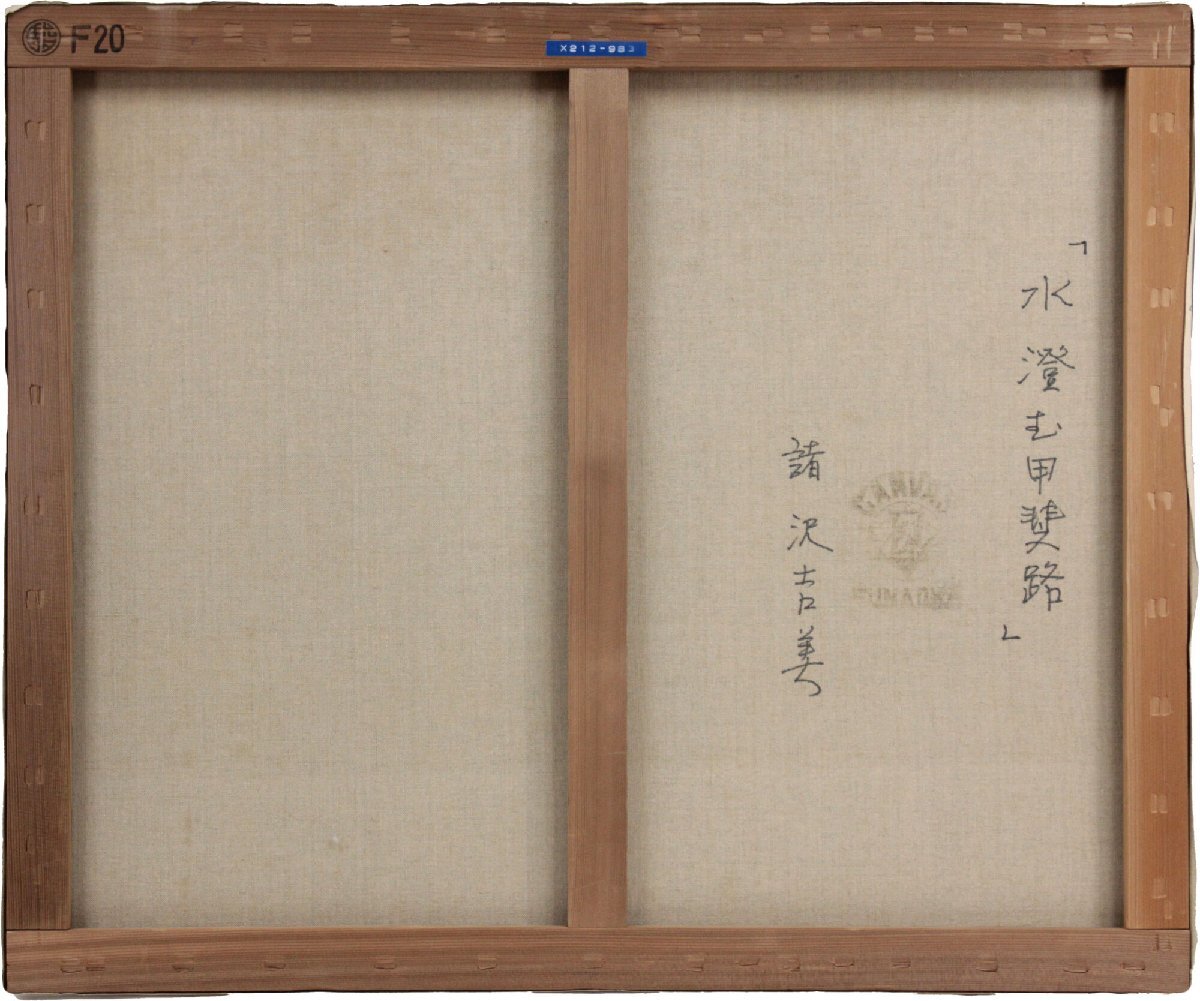 F20
X212-983
「水澄む甲斐路」
諸沢吉美
CANVAS
FUNAOKA